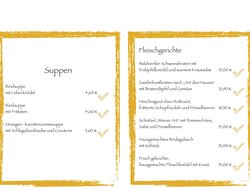 Suppen
Rindsuppe
mit Leberknödel
4,60 €
Rindsuppe
mit Fritaten
4,60 €
Orangen- Karottencremesuppe
mit Schlagobershaube und Croutons
3,60 €
Fleischgerichte
Waldviertler Schweinsbraten mit
Erdäpfelknödel und warmen Krautsalat
13,00 €
Zwiebelrostbraten nach „Art des Hauses"
mit Bratenerdäpfel und Gemüse
Hirschragout dazu Rotkraut,
frittierte Schupfnudeln und Preiselbeeren
Schnitzel „Wiener Art" mit Pommes frites,
Salat und Preiselbeeren
Hausgemachtes Rindsgulasch
mit Gebäck
Frisch gekochte,
hausgemachte Fleischknödel mit Kraut